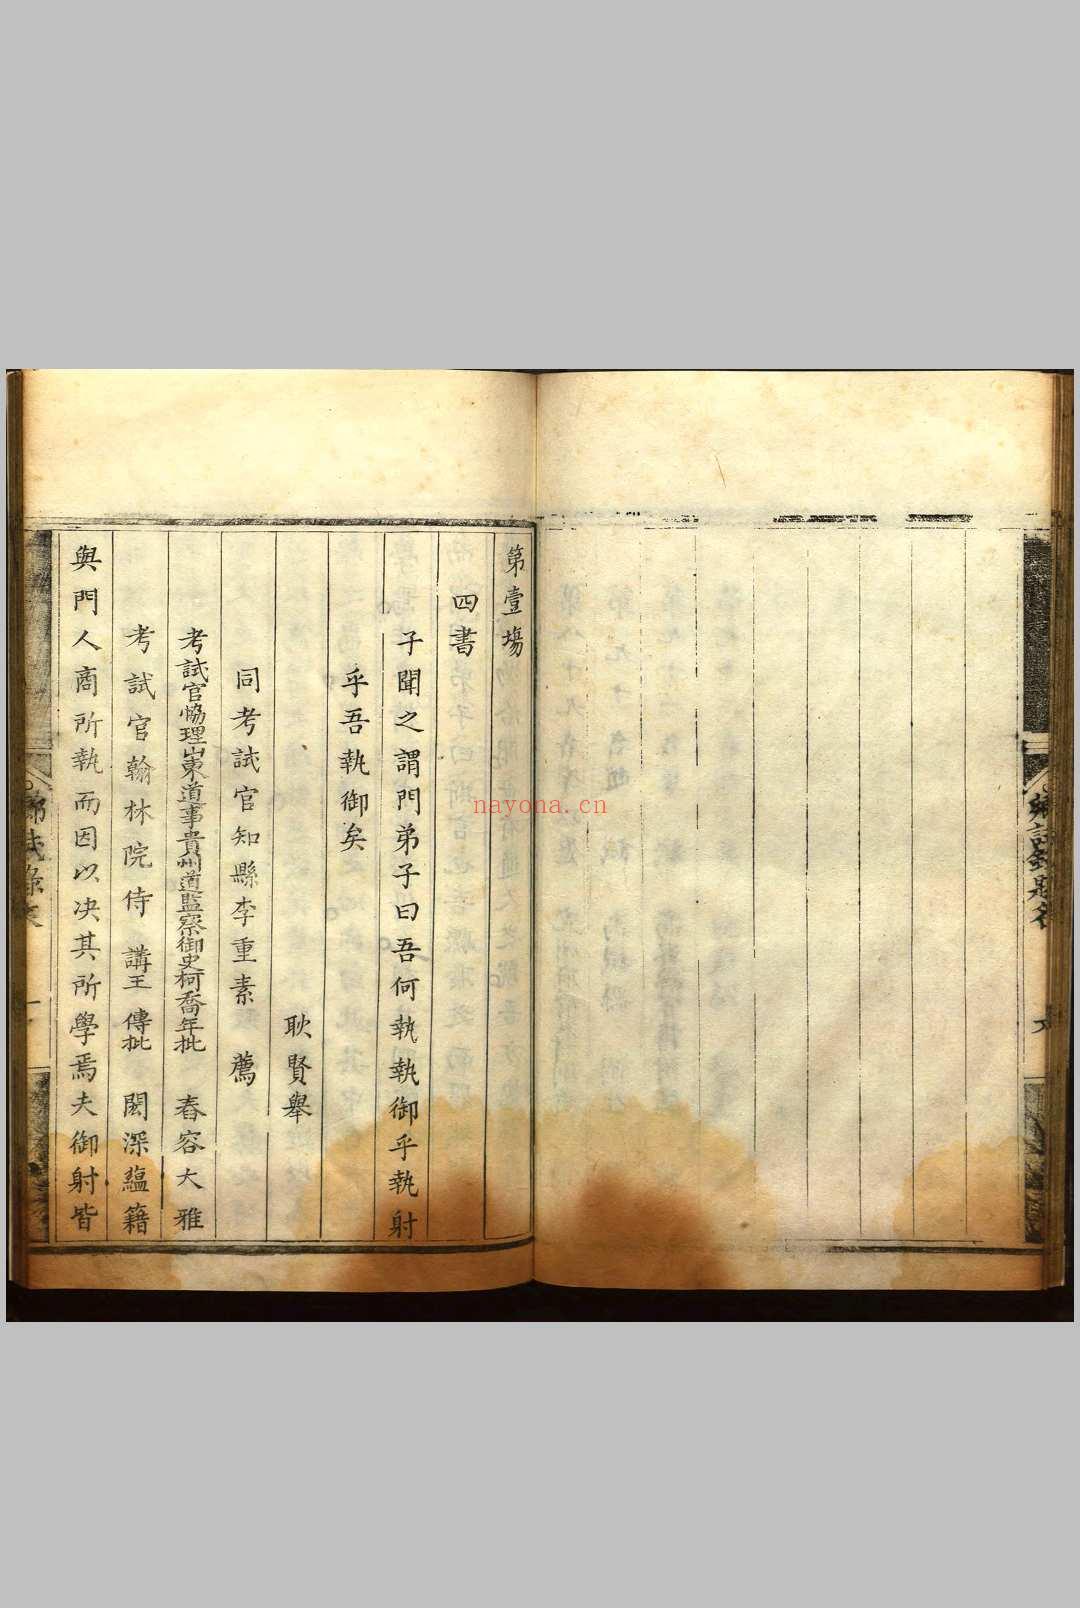 第壹塲
四書
子聞之謂門弟子曰吾何執執御乎執射
乎吾執御矣
耿賢舉
同考試官知縣李重素 薦
考試官協理山東道事貴州道監察御史柯喬年批 春容大雅
考試官翰林院侍講王傳批 閎深蘊籍
與門人商所執而因以決其所學焉夫御射皆
nayona.cn